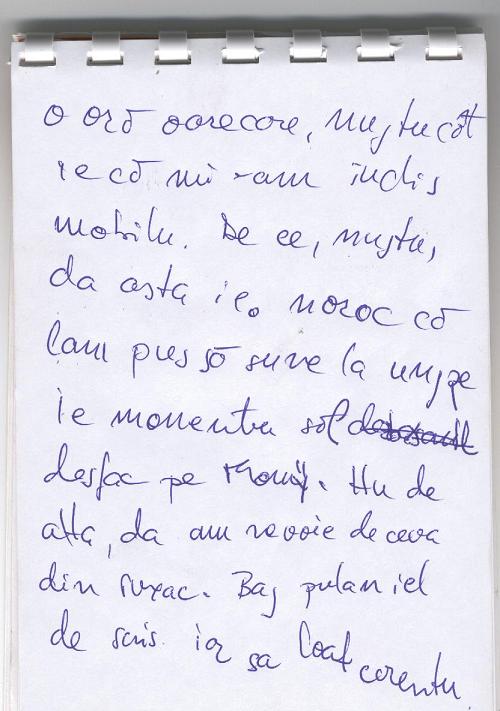 o oră oarecare, nuștu cât
ie că mi-am inchis
mobilu. De ce, nuștu,
da asta ie. noroc că
lam pus să sune la unșpe
ie momentu săl
desfac pe Nu de
alta, da am nevoie de ceva
din ruxac. Baș pulan iel
de scris. iar sa loat corentu.